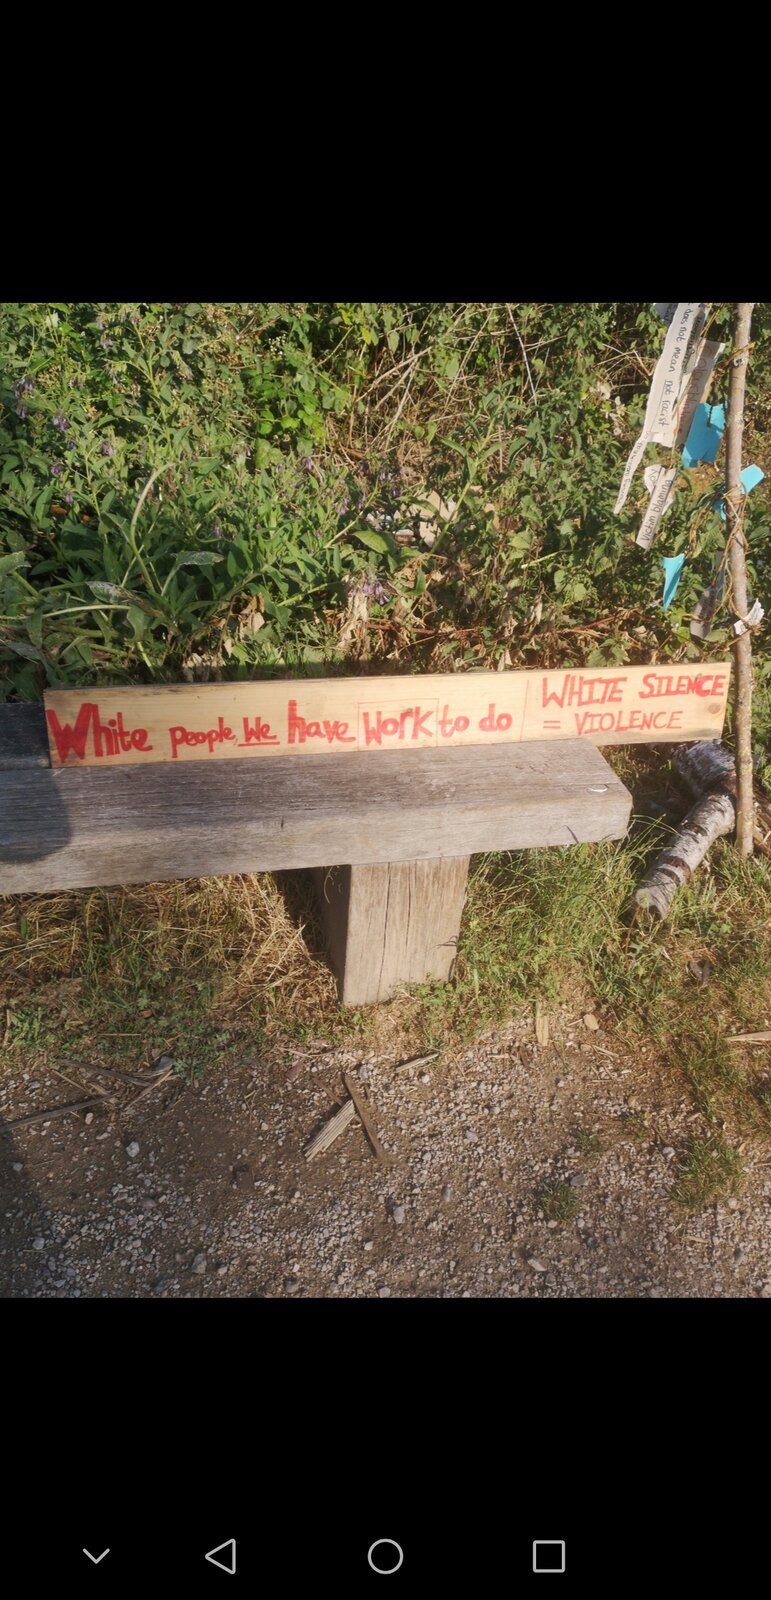 White people, We have Work to do
WHITE SILENCE
= VIOLENCE
does not mean not racist